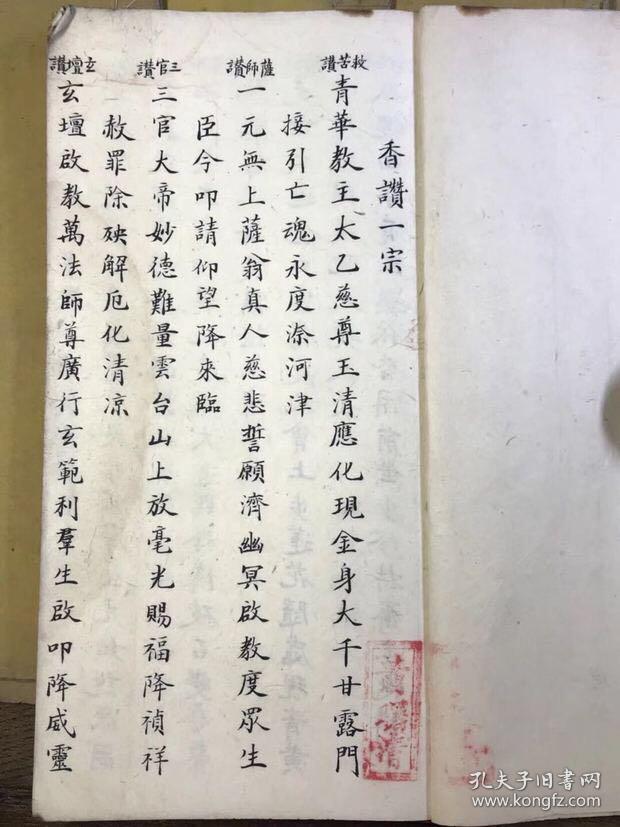 香讚一宗
救苦讚
青華教主太乙慈尊玉清應化現金身大千甘露門
接引亡魂永度漆河津
薩師讚
一元無上薩翁真人慈悲誓願濟幽冥啟教度眾生
臣今叩請仰望降來臨
三官讚
三官大帝妙德難量雲台山上放毫光賜福降禎祥
赦罪除殃解厄化清凉
玄壇讚
玄壇啟教萬法師尊廣行玄範利羣生啟叩降威靈
孔夫子旧书网
KONGFZ.COM